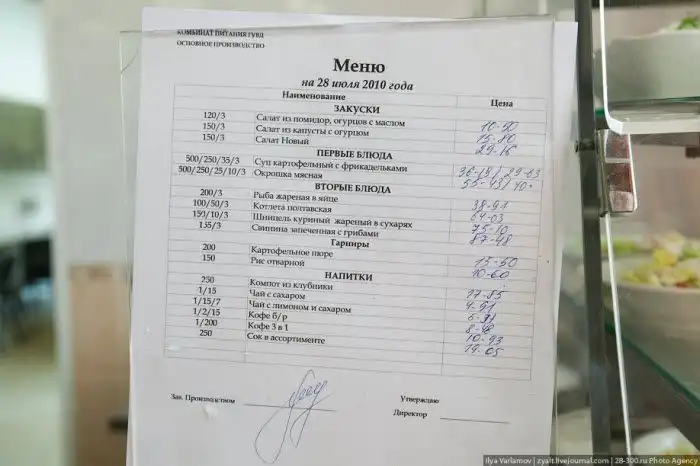 КОМБИНАТ ПИТАНИЯ ГУВД
ОСНОВНОЕ ПРОИЗВОДСТВО
Меню
на 28 июля 2010 года
Наименование Цена
ЗАКУСКИ
120/3 Салат из помидор, огурцов с маслом 10-50
150/3 Салат из капусты с огурцом 15-80
150/3 Салат Новый 29-16
ПЕРВЫЕ БЛЮДА
500/250/35/3 Суп картофельный с фрикадельками
500/250/25/10/3 Окрошка мясная
ВТОРЫЕ БЛЮДА
200/3 Рыба жареная в яйце 38-91
100/50/3 Котлета полтавская 64-03
150/10/3 Шницель куриный жареный в сухарях 75-10
155/3 Свинина запеченная с грибами 87-48
Гарниры
200 Картофельное пюре 15-50
150 Рис отварной 10-60
НАПИТКИ
250 Компот из клубники 17-85
1/15 Чай с сахаром 4-91
1/15/7 Чай с лимоном и сахаром
1/2/15 Кофе б/р
1/200 Кофе 3 в 1 10-93
250 Сок в ассортименте 19-05
Зав. Производством Утверждаю
Директор
Ilya Varlamov | zyalt.livejournal.com | 28-300.ru Photo Agency